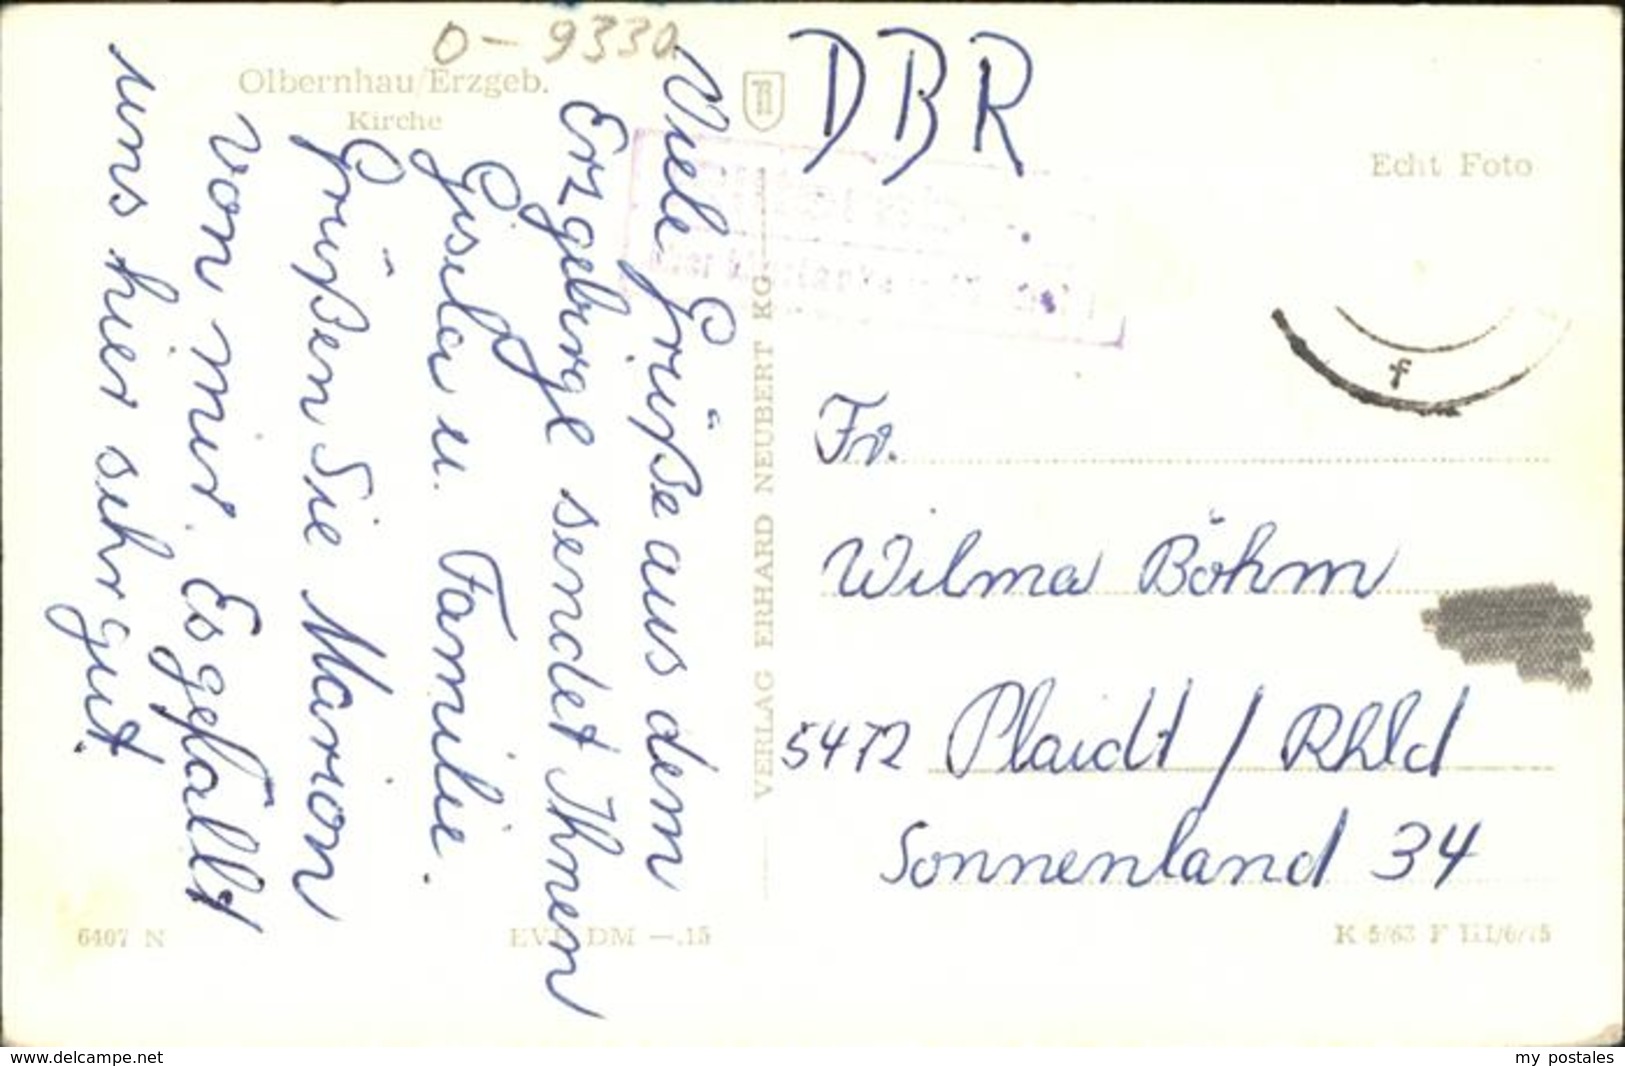 O-9330
Olbernhau/Erzgeb.
Kirche
Viele Grüße aus dem
Erzgebirge sendet Ihnen
Gisela u. Familie.
Grüßen Sie Marion
von mir. Es gefällt
uns hier sehr gut.
6407 N
EVP DM —.15
VERLAG ERHARD NEUBERT KG
DBR
Echt Foto
Fr.
Wilma Böhm
5472 Plaidt / Rhld
Sonnenland 34
K 5/63 F III/6/15
www.delcampe.net
my postales